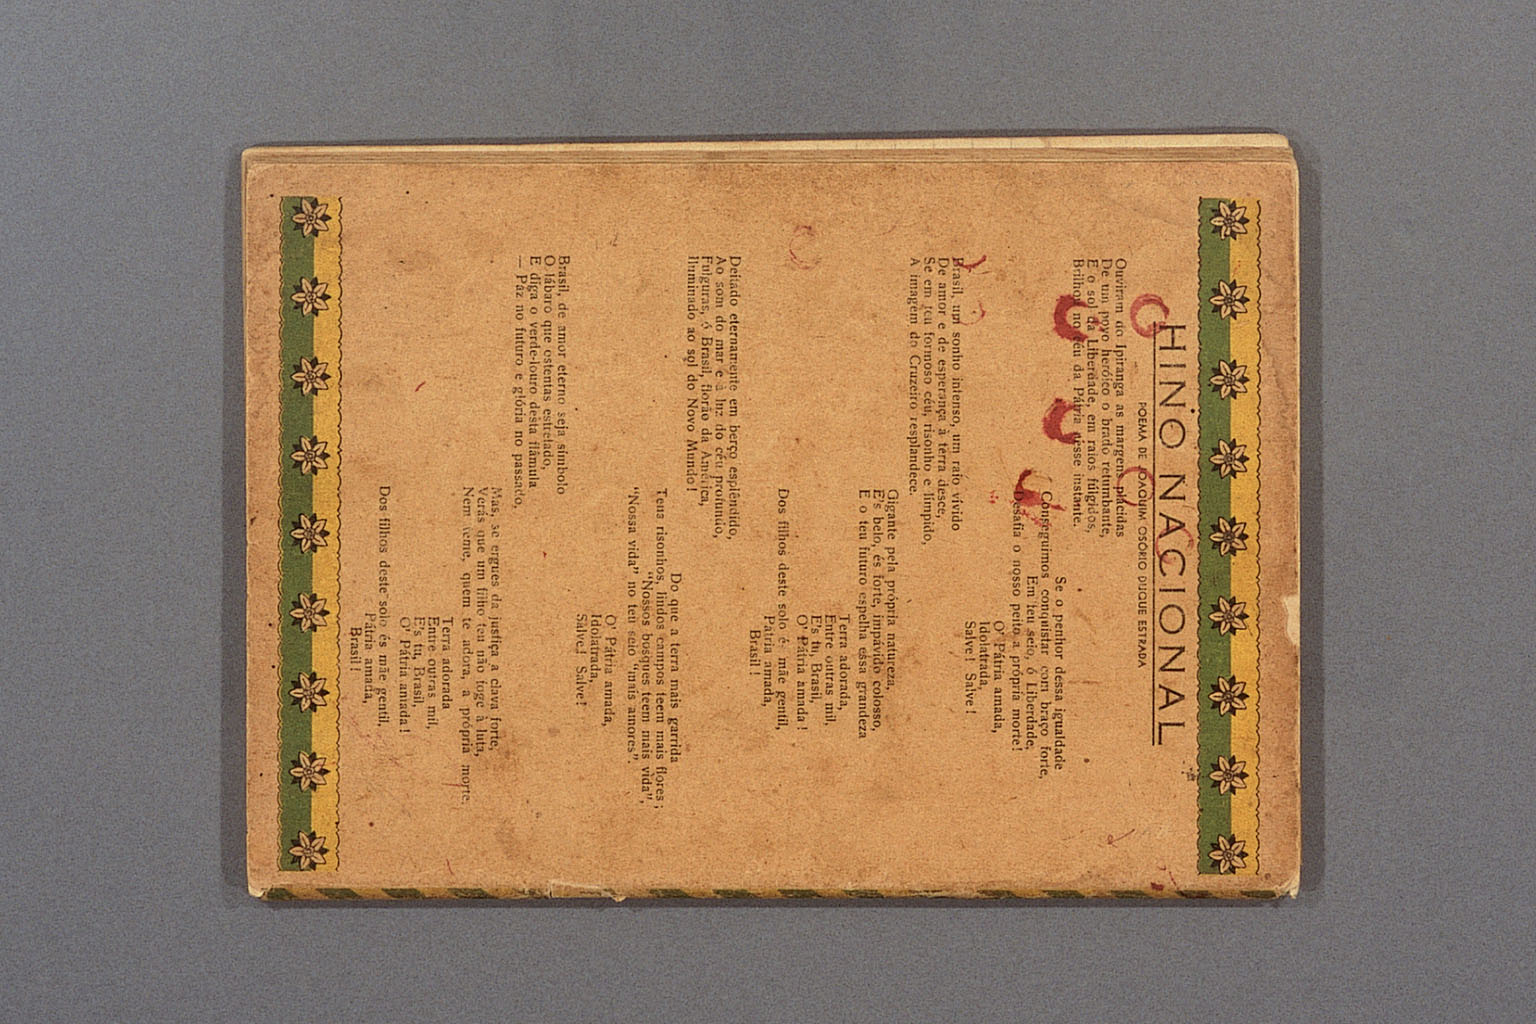 HINO NACIONAL
POEMA DE JOAQUIM OSÓRIO DUQUE ESTRADA
Ouviram do Ipiranga as margens plácidas
De um povo heróico o brado retumbante,
E o sol da Liberdade, em raios fúlgidos,
Brilhou no céu da Pátria nesse instante.
Se o penhor dessa igualdade
Conseguimos conquistar com braço forte,
Em teu seio, ó Liberdade,
Desafia o nosso peito a própria morte!
O' Pátria amada,
Idolatrada,
Salve! Salve!
Brasil, um sonho intenso, um raio vívido
De amor e de esperança à terra desce,
Se em teu formoso céu, risonho e límpido,
A imagem do Cruzeiro resplandece.
Gigante pela própria natureza,
E's belo, és forte, impávido colosso,
E o teu futuro espelha essa grandeza
Terra adorada,
Entre outras mil,
E's tu, Brasil,
O' Pátria amada!
Dos filhos deste solo é mãe gentil,
Pátria amada,
Brasil!
Deitado eternamente em berço esplêndido,
Ao som do mar e à luz do céu profundo,
Fulguras, ó Brasil, florão da América,
Iluminado ao sol do Novo Mundo!
Do que a terra mais garrida
Teus risonhos, lindos campos teem mais flores;
"Nossos bosques teem mais vida",
"Nossa vida" no teu seio "mais amores".
O' Pátria amada,
Idolatrada,
Salve! Salve!
Brasil, de amor eterno seja símbolo
O lábaro que ostentas estrelado,
E diga o verde-louro desta flâmula
— Paz no futuro e glória no passado.
Mas, se ergues da justiça a clava forte,
Verás que um filho teu não foge à luta,
Nem teme, quem te adora, a própria morte.
Terra adorada
Entre outras mil,
E's tu, Brasil,
O' Pátria amada!
Dos filhos deste solo és mãe gentil,
Pátria amada,
Brasil!